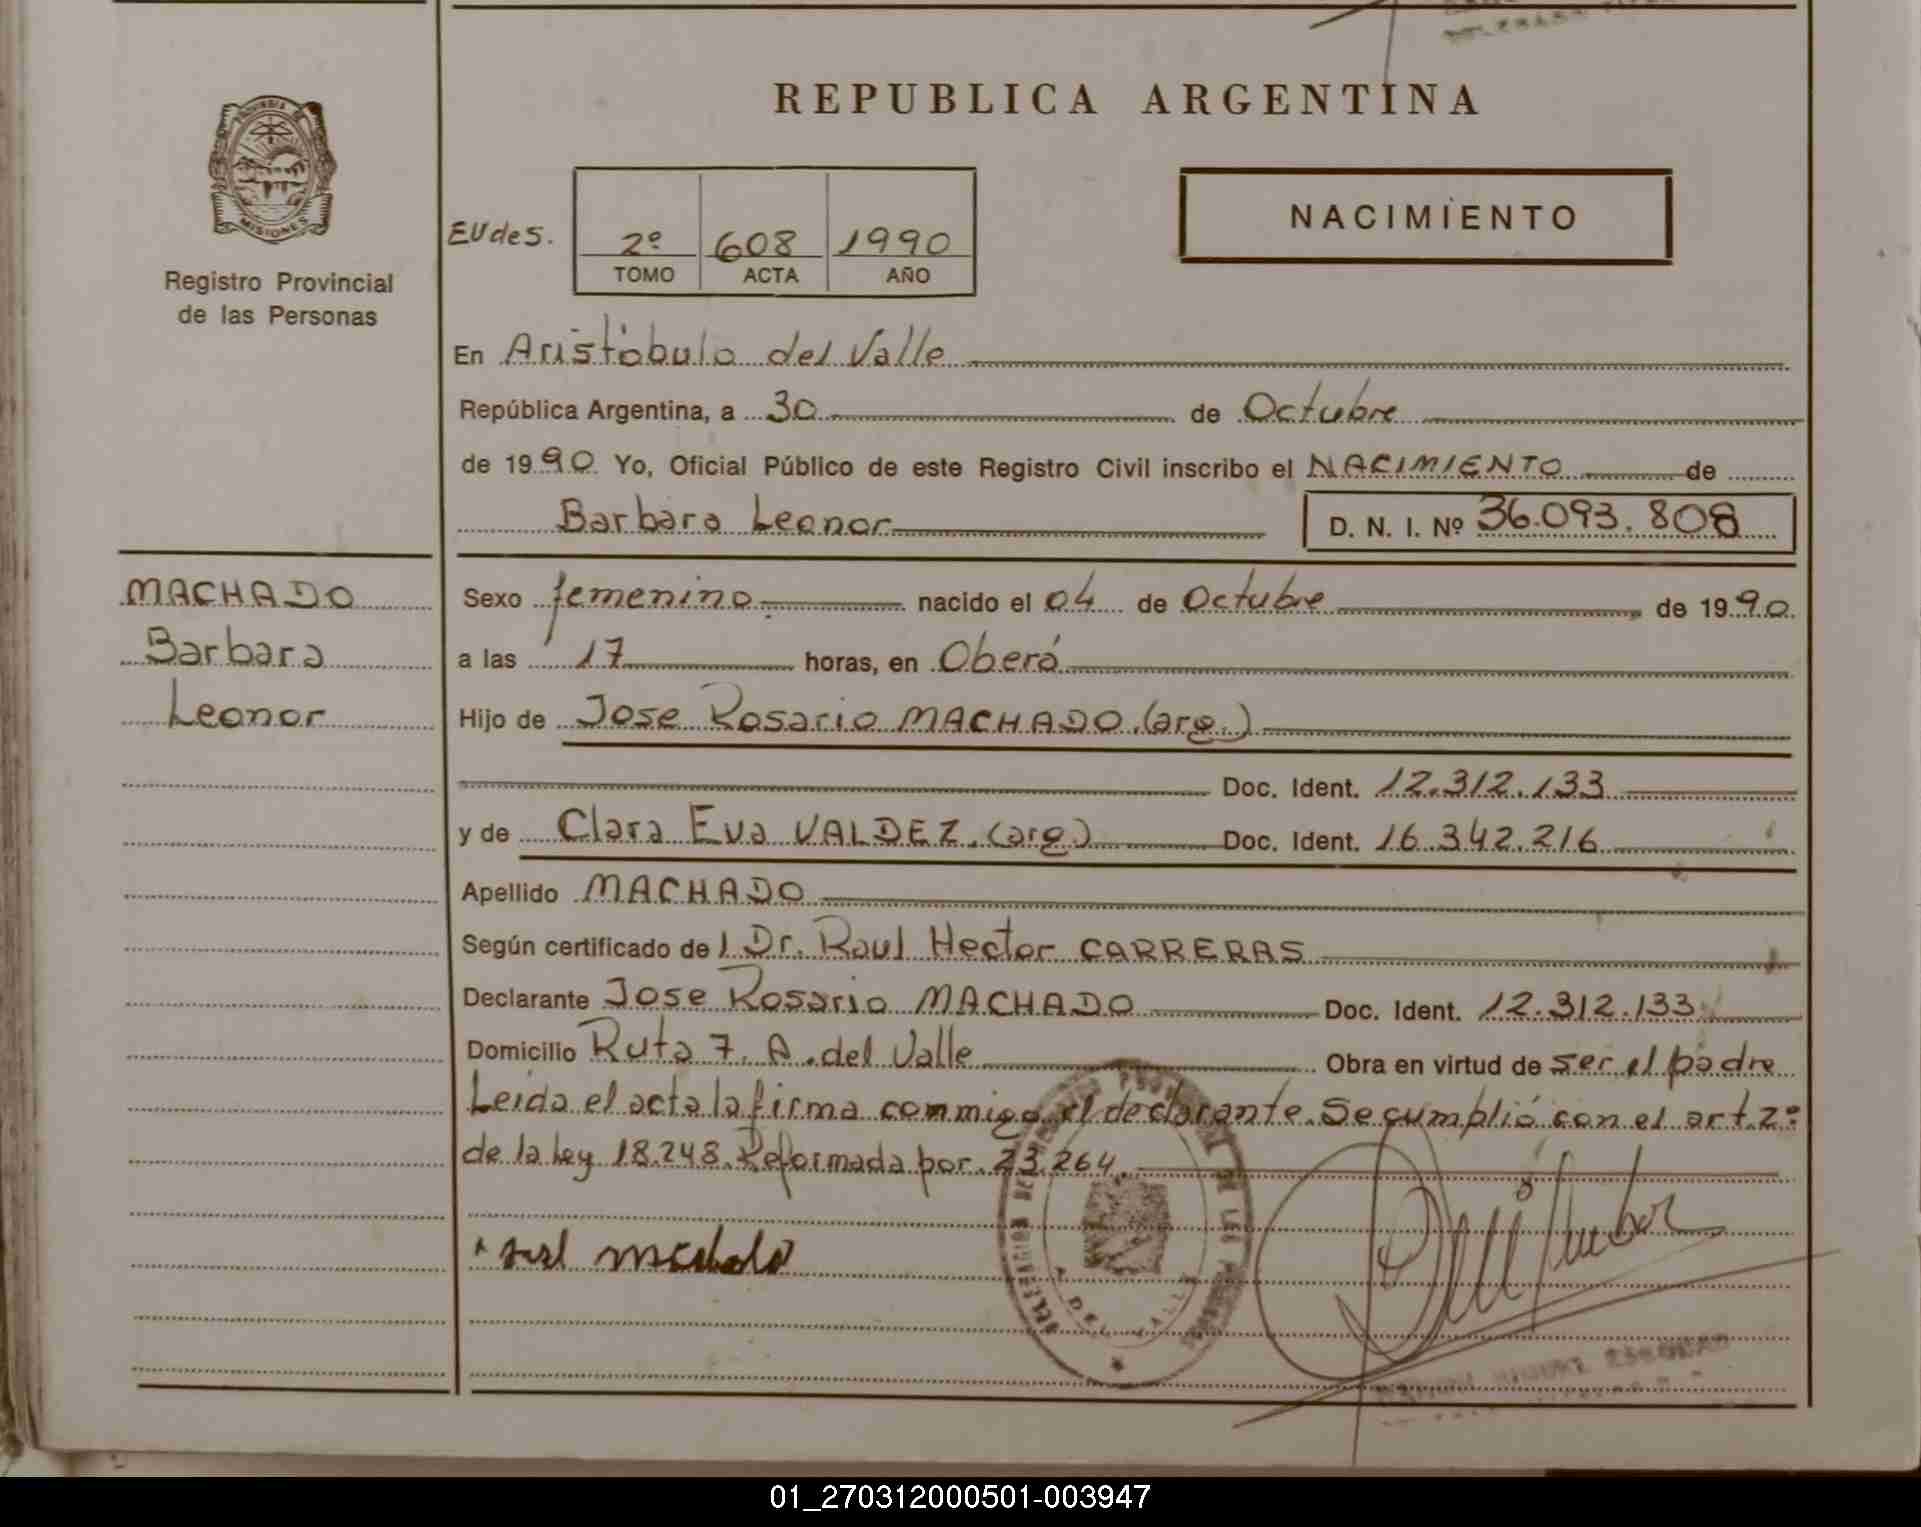 REPUBLICA ARGENTINA
PROVINCIA DE
MISIONES
Registro Provincial
de las Personas
EUdes.
2º 608 1990
TOMO ACTA AÑO
NACIMIENTO
En Aristóbulo del Valle
República Argentina, a 30 de Octubre
de 1990 Yo, Oficial Público de este Registro Civil inscribo el NACIMIENTO de
Barbara Leonor
D. N. I. Nº 36.093.808
MACHADO
Barbara
Leonor
Sexo femenino nacido el 04 de Octubre de 1990
a las 17 horas, en Oberá
Hijo de Jose Rosario MACHADO (arg.)
Doc. Ident. 12.312.133
y de Clara Eva VALDEZ (arg.) Doc. Ident. 16.342.216
Apellido MACHADO
Según certificado de l Dr. Raul Hector CARRERAS
Declarante Jose Rosario MACHADO Doc. Ident. 12.312.133
Domicilio Ruta 7. A. del Valle Obra en virtud de ser el padre
Leida el acta la firma conmigo el declarante. Se cumplió con el art. 2º
de la Ley 18.248. Reformada por 23.264.
A. DEL VALLE
01_270312000501-003947